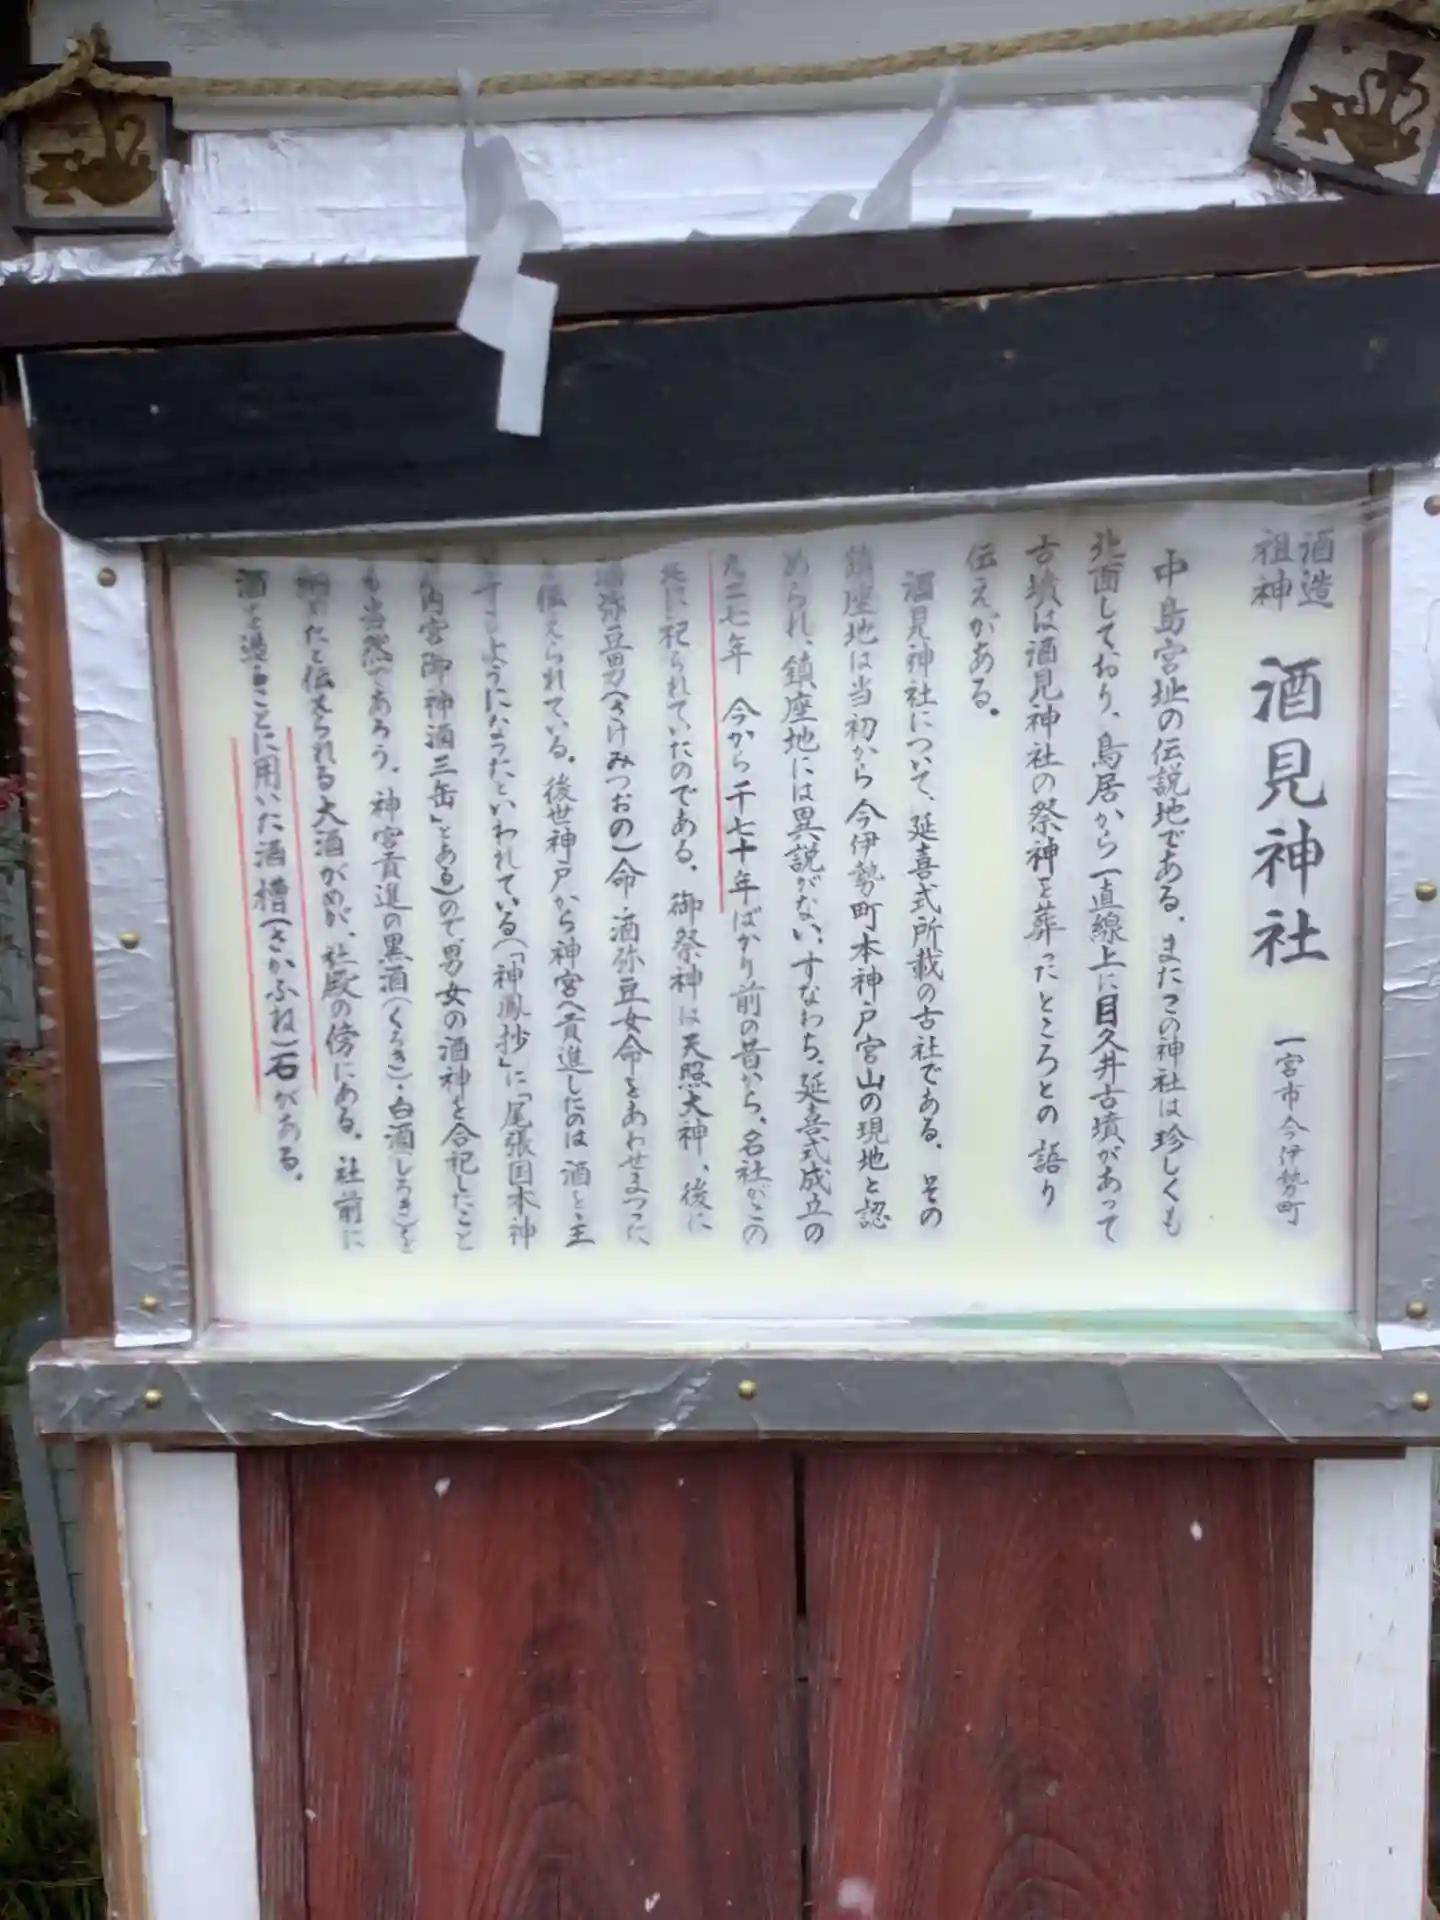 酒造
祖神
酒見神社
一宮市今伊勢町
中島宮址の伝説地である。またこの神社は珍しくも
北面しており、鳥居から一直線上に目久井古墳があって
古墳は酒見神社の祭神を葬ったところとの語り
伝えがある。
酒見神社について、延喜式所載の古社である。その
鎮座地は当初から今伊勢町本神戸宮山の現地と認
められ、鎮座地には異説がない、すなわち、延喜式成立の
九二七年 今から千七十年ばかり前の昔から、名社がこの
に祀られていたのである。御祭神は天照大神、後に
酒弥豆男(さけみつおの)命・酒弥豆女命をあわせまつった
伝えられている。後世神戸から神宮へ貢進したのは酒を主
するようになったといわれている(「神鳳抄」に「尾張国本神
内宮御神酒三缶」とある)ので、男女の酒神を合祀したこと
も当然であろう。神宮貢進の黒酒(くろき)・白酒(しろき)を
納めたと伝えられる大酒がめが、社殿の傍にある。社前に
酒を造ることに用いた酒槽(さかふね)石がある。